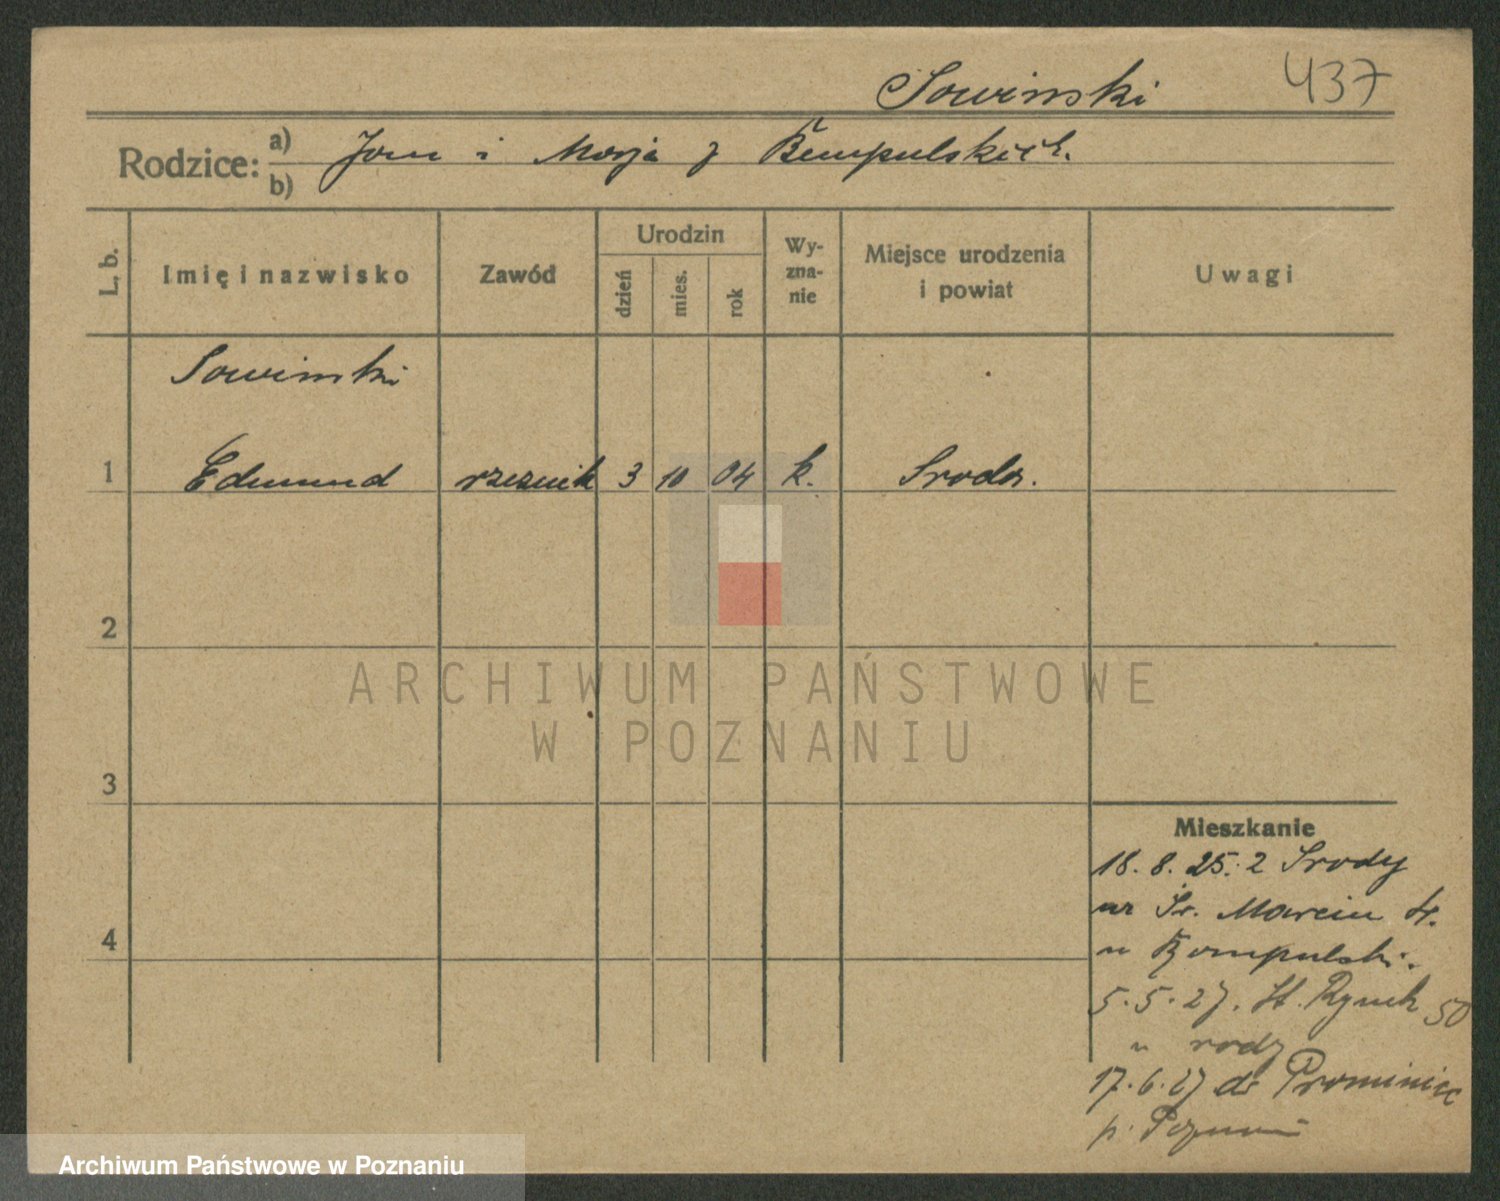 Sowinski 437
Rodzice: a) Jan i Marja z Kempulskich.
b)
L. b. Imię i nazwisko Zawód Urodzin dzień mies. rok Wy-zna-nie Miejsce urodzenia i powiat Uwagi
Sowinski
1 Edmund rzeznik 3 10 04 k. Sroda.
2
3
4
ARCHIWUM PAŃSTWOWE
W POZNANIU
Mieszkanie
18. 8. 25. z Srody
na Św. Marcin
u
5. 5. 27. St. Rynek 50
u
17. 6. 27 do
p. Poznań
Archiwum Państwowe w Poznaniu